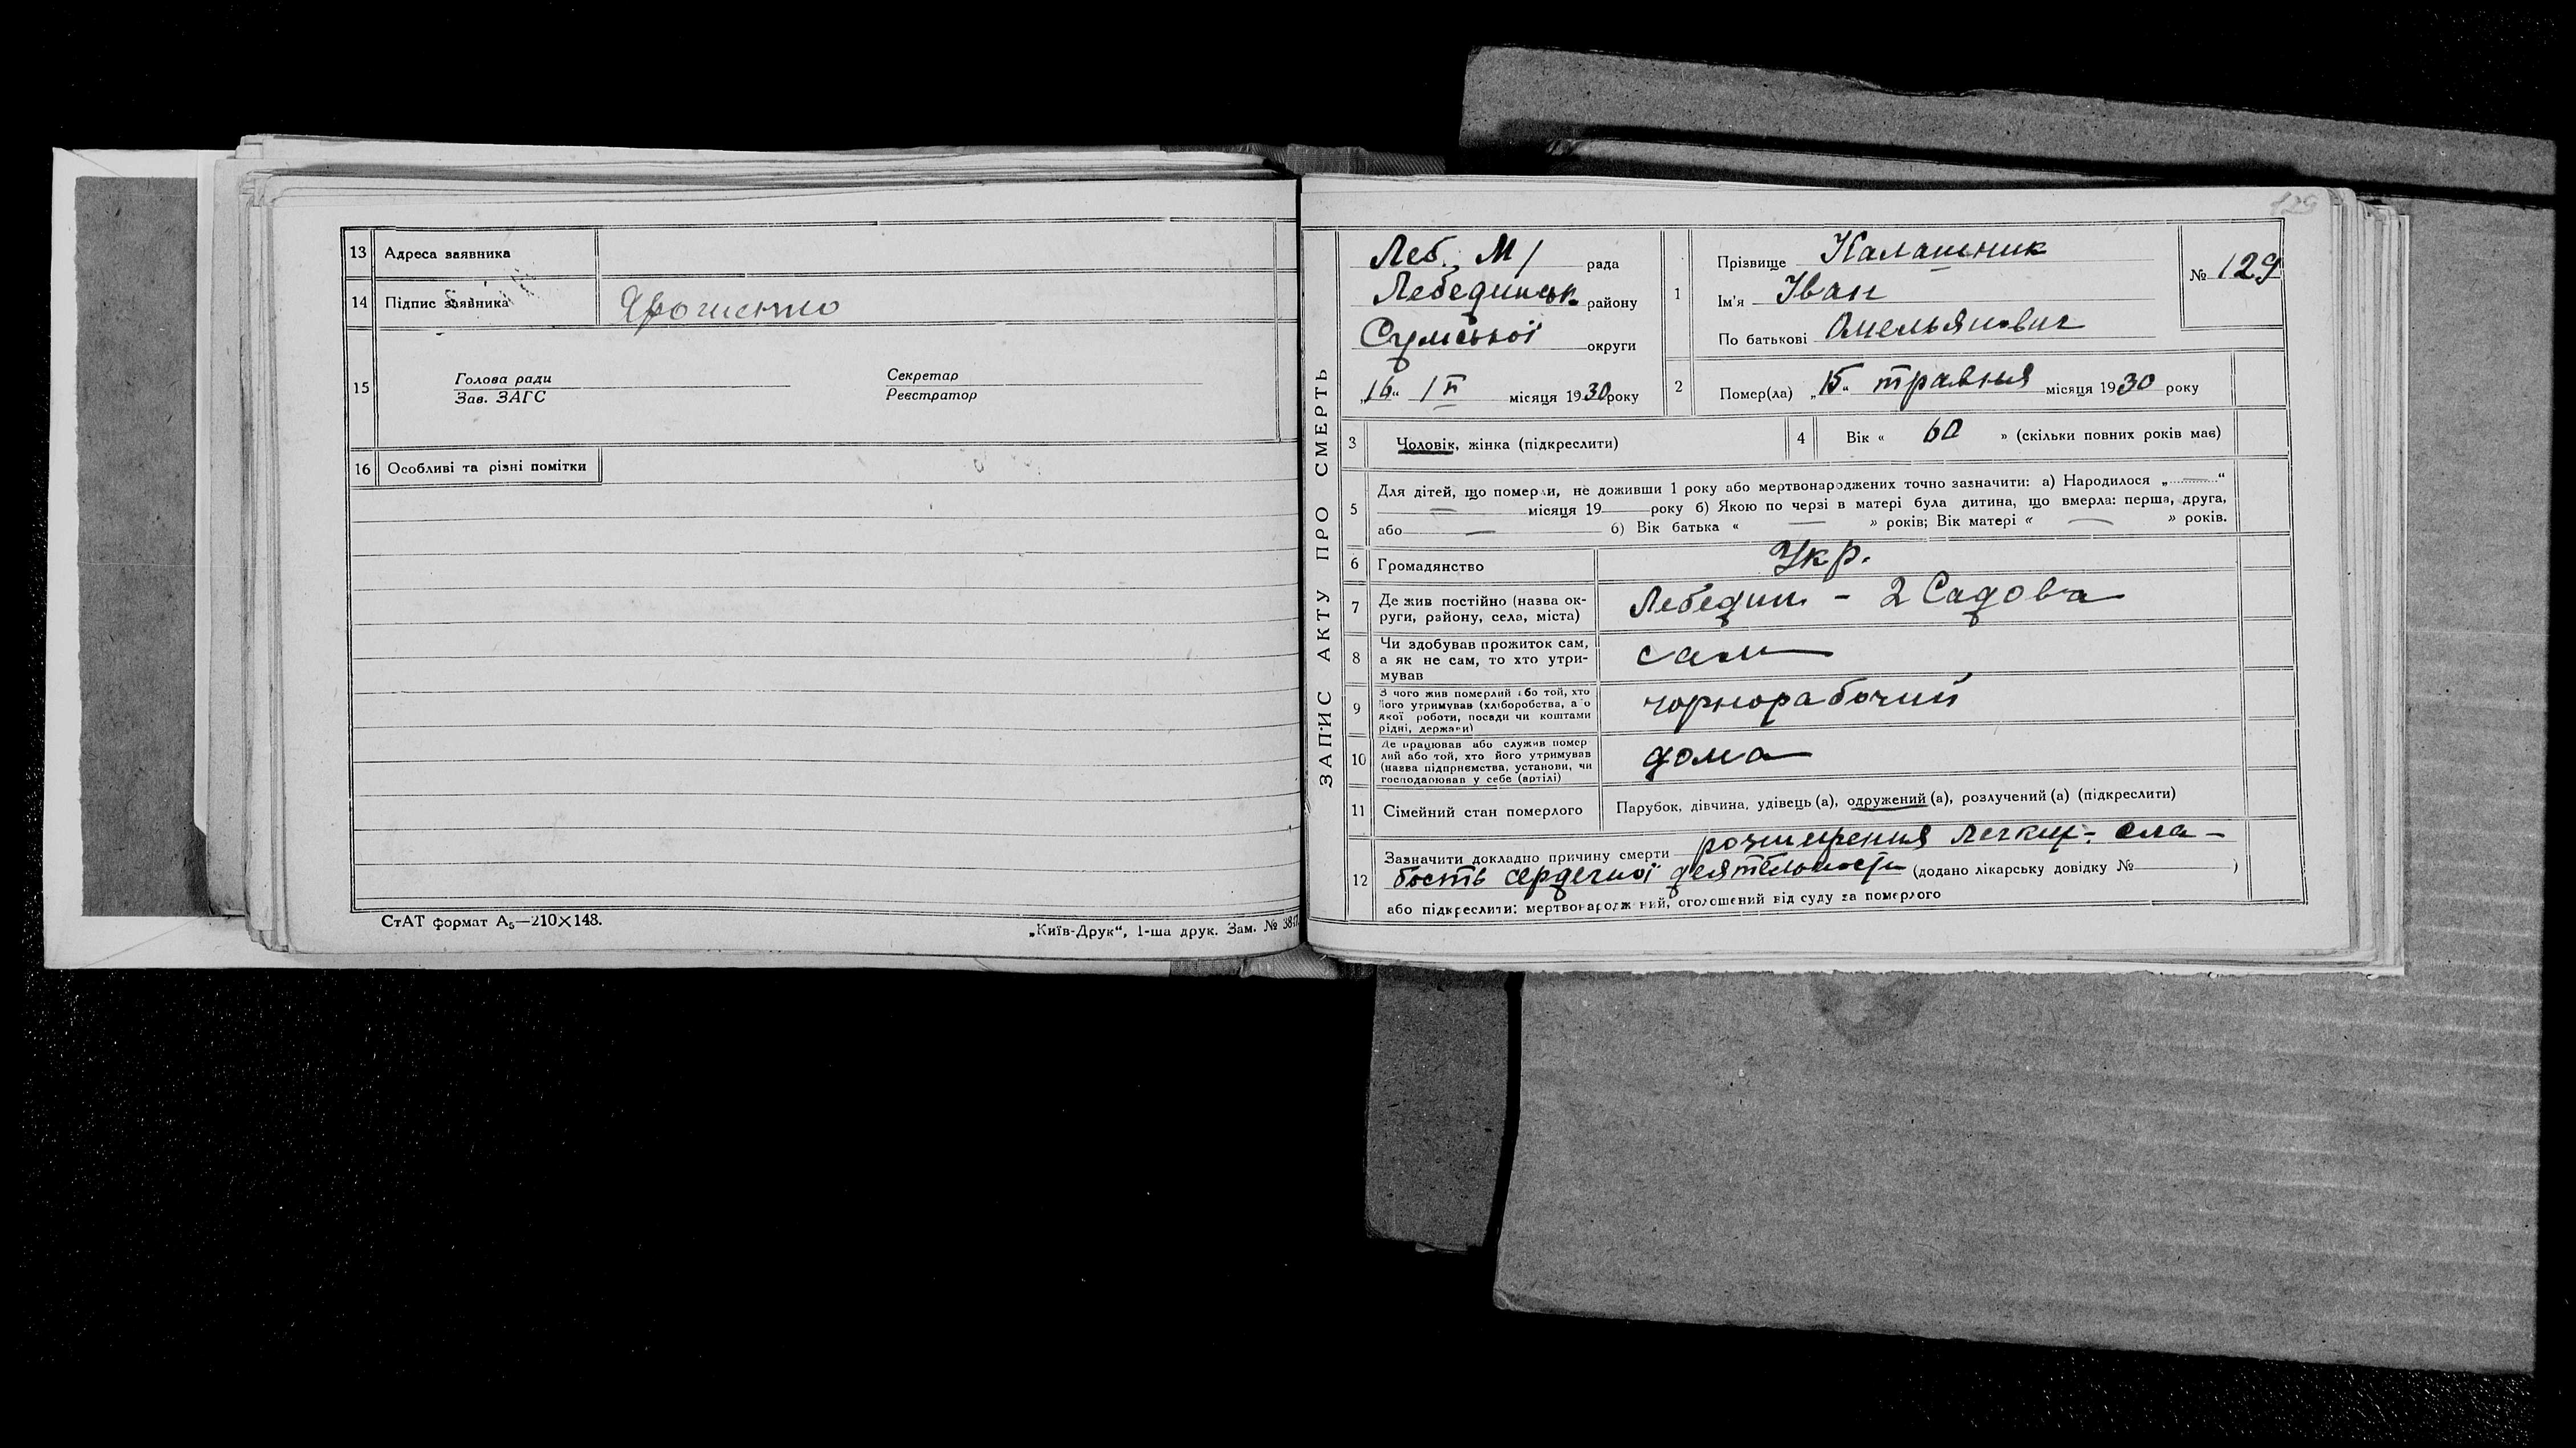 13 Адреса заявника
14 Підпис заявника Ярошенко
15 Голова ради Секретар
Зав. ЗАГС Реєстратор
16 Особливі та різні помітки
СтАТ формат А₅—210×148.
„Київ-Друк“, 1-ша друк. Зам. № 38
129
ЗАПИС АКТУ ПРО СМЕРТЬ
Леб. М/ рада
Лебединськ. району
Сумської округи
„16“ місяця 1930 року
1 Прізвище Калашник
Ім'я Іван
По батькові Омельянович
№ 129
2 Помер(ла) „15“ травня місяця 1930 року
3 Чоловік, жінка (підкреслити)
4 Вік « 60 » (скільки повних років має)
5 Для дітей, що померли, не доживши 1 року або мертвонароджених точно зазначити: а) Народилося „ — “
— місяця 19 року б) Якою по черзі в матері була дитина, що вмерла: перша, друга,
або — б) Вік батька « — » років; Вік матері « — » років.
6 Громадянство Укр.
7 Де жив постійно (назва ок-
руги, району, села, міста) Лебедин. - 2 Садова
8 Чи здобував прожиток сам,
а як не сам, то хто утри-
мував сам
9 З чого жив померлий або той, хто
його утримував (хліборобства, або
якої роботи, посади чи коштами
рідні, держави) чорнорабочий
10 Де працював або служив помер
лий або той, хто його утримував
(назва підприємства, установи, чи
господарював у себе (артілі) дома
11 Сімейний стан померлого Парубок, дівчина, удівець (а), одружений (а), розлучений (а) (підкреслити)
12 Зазначити докладно причину смерти розширення легких. сла-
бость сердечної деятельности (додано лікарську довідку № )
або підкреслити: мертвонароджений, оголошений від суду за померлого